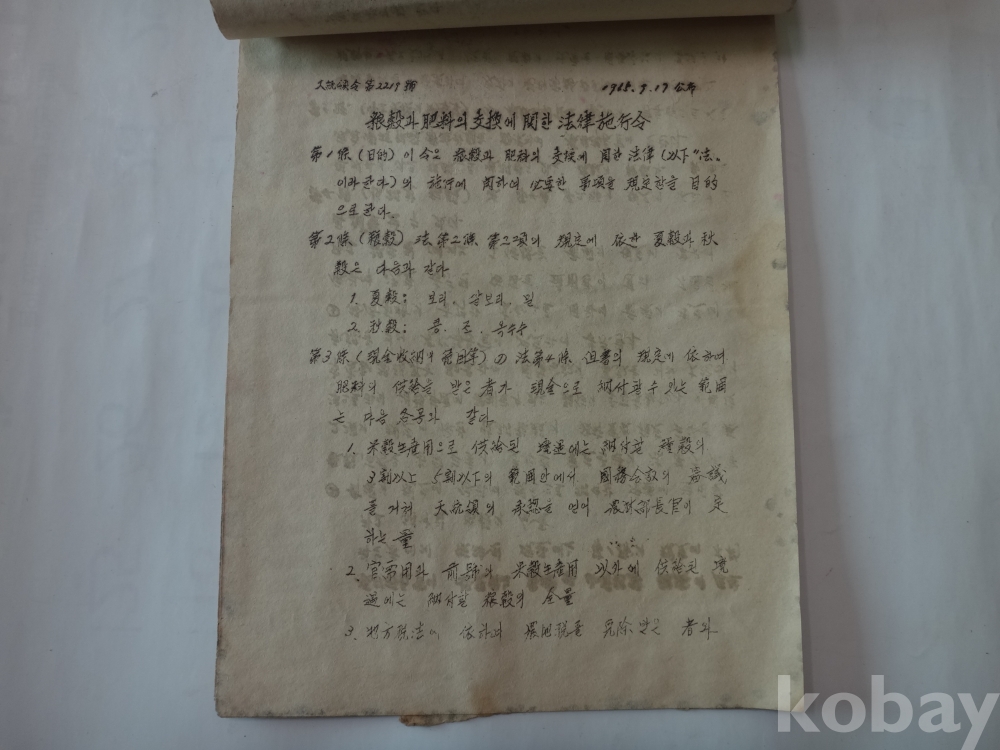 大統領令第2219號 1965.9.17 公布
粮穀과 肥料의 交換에 関한 法律施行令
第1條 (目的) 이 令은 粮穀과 肥料의 交換에 関한 法律 (以下 "法"
이라 한다) 의 施行에 関하여 必要한 事項을 規定함을 目的
으로 한다.
第2條 (粮穀) 法 第2條 第2項의 規定에 依한 夏穀과 秋
穀은 다음과 같다
1. 夏穀: 보리. 쌀보리. 밀
2. 秋穀: 콩. 조. 옥수수
第3條 (現金收納의 範囲等) ① 法第4條 但書의 規定에 依하여
肥料의 供給을 받은 者가 現金으로 納付할 수 있는 範囲
는 다음 各号와 같다
1. 米穀生産用으로 供給된 境遇에는 納付할 粮穀의
3割以上 5割以下의 範囲안에서 国務会議의 審議
를 거쳐 大統領의 承認을 얻어 農林部長官이 定
하는 量
2. 官需用과 前号의 米穀生産用 以外에 供給된 境
遇에는 納付할 粮穀의 全量
3. 地方税法에 依하여 農地税를 免除받은 者와
kobay